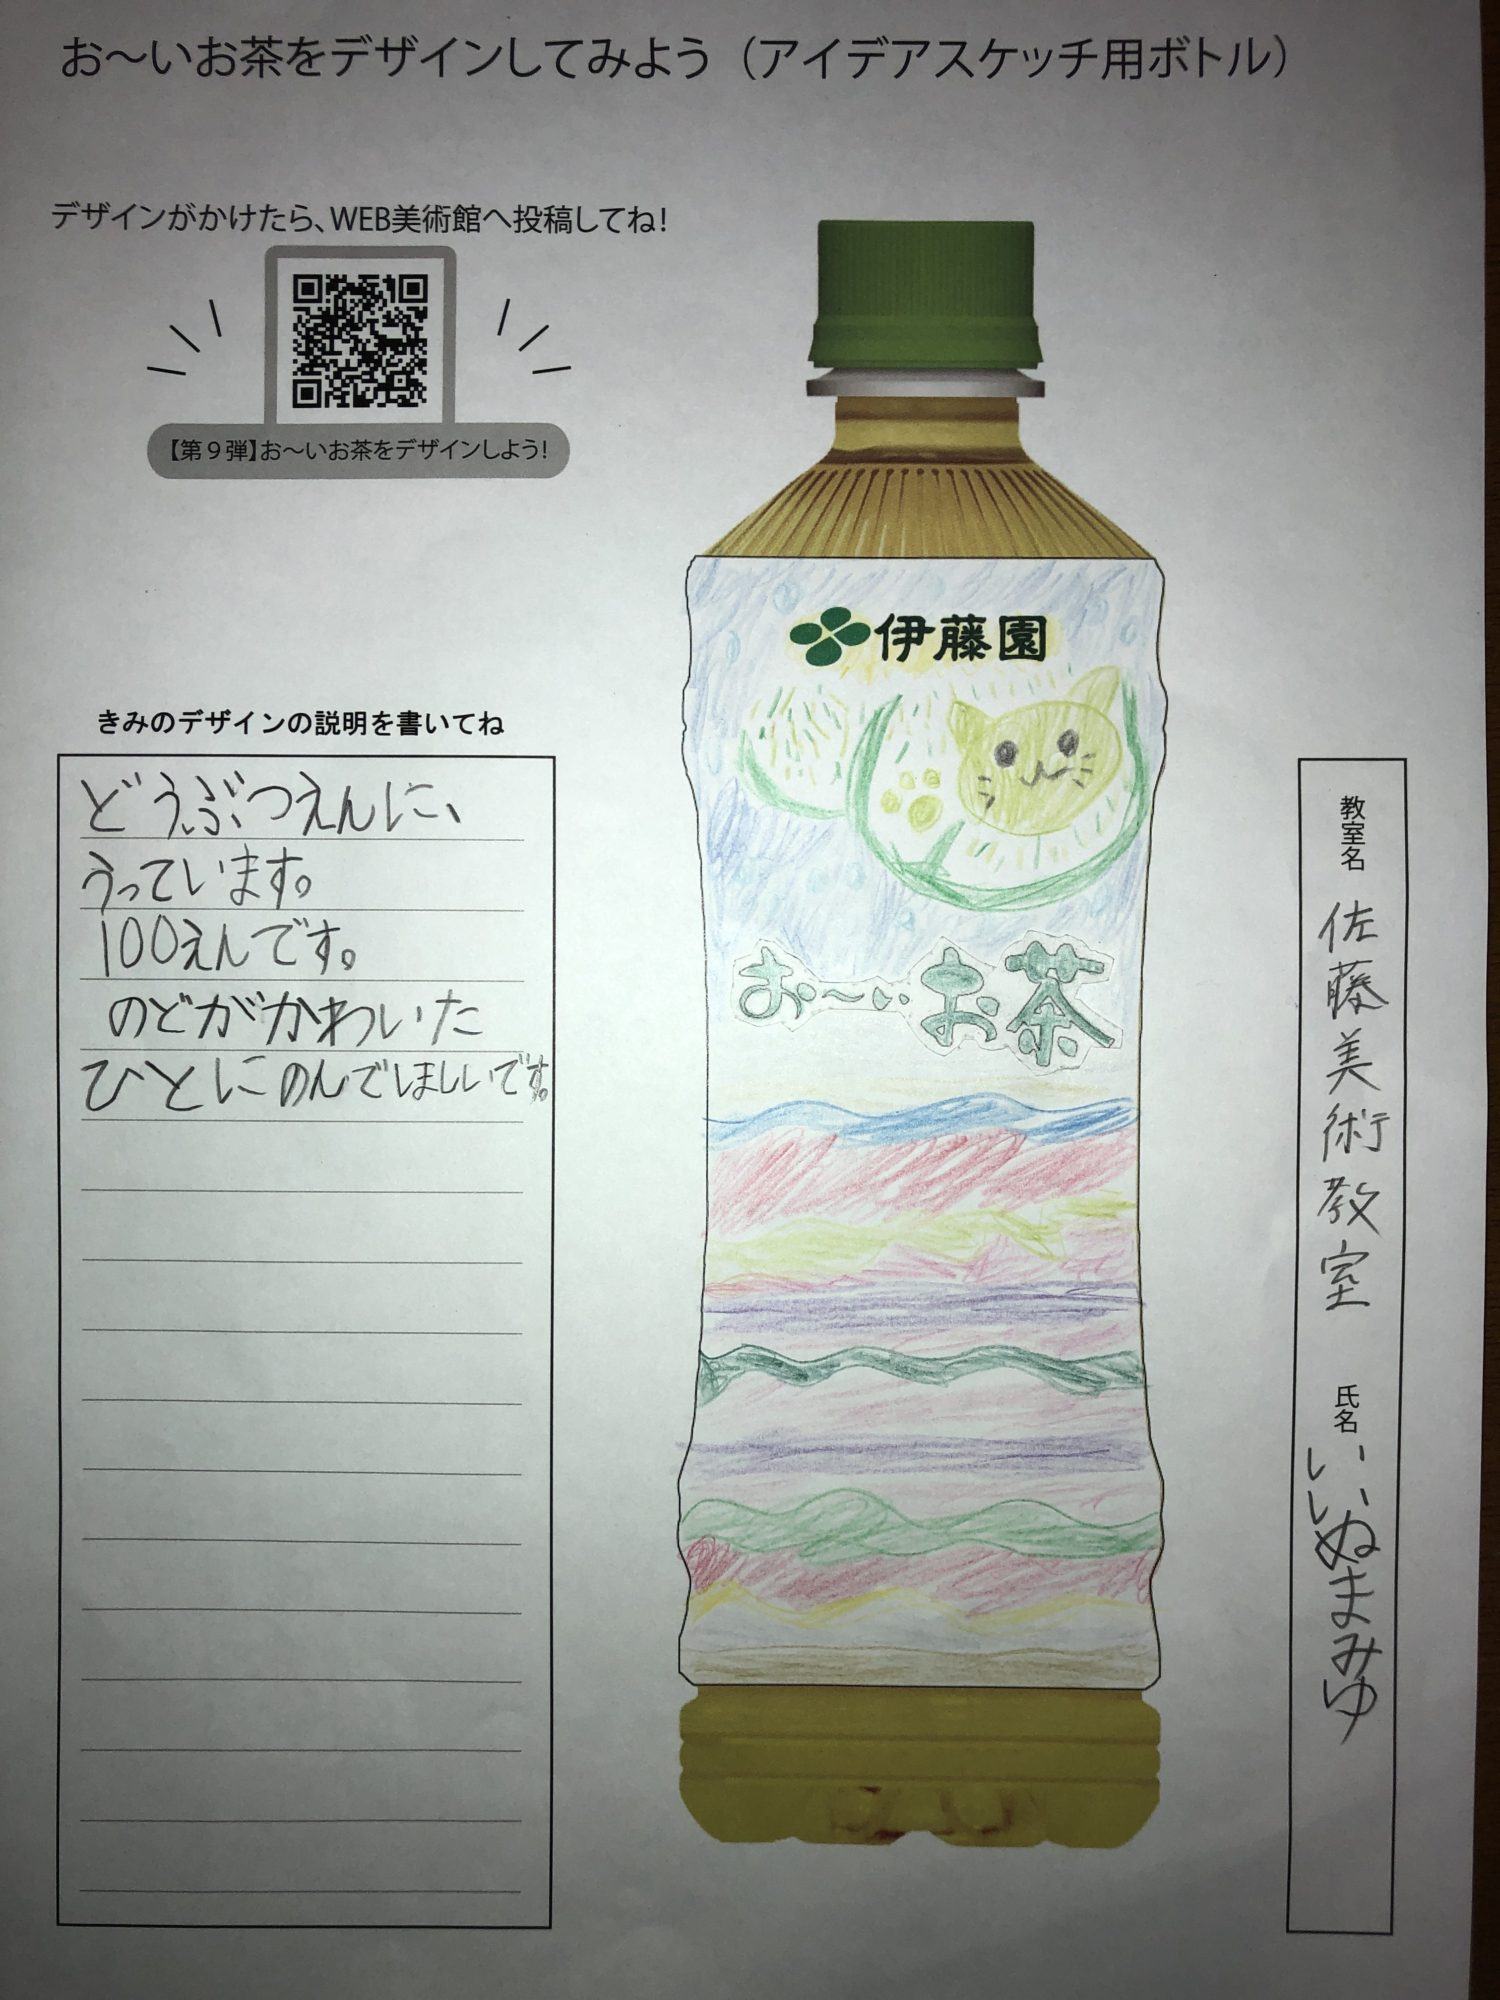 お～いお茶をデザインしてみよう（アイデアスケッチ用ボトル）
デザインがかけたら、WEB美術館へ投稿してね！
【第９弾】お～いお茶をデザインしよう！
伊藤園
お～いお茶
きみのデザインの説明を書いてね
どうぶつえんに、
うっています。
100えんです。
のどがかわいた
ひとにのんでほしいです。
教室名 佐藤美術教室 氏名 いいぬまみゆ